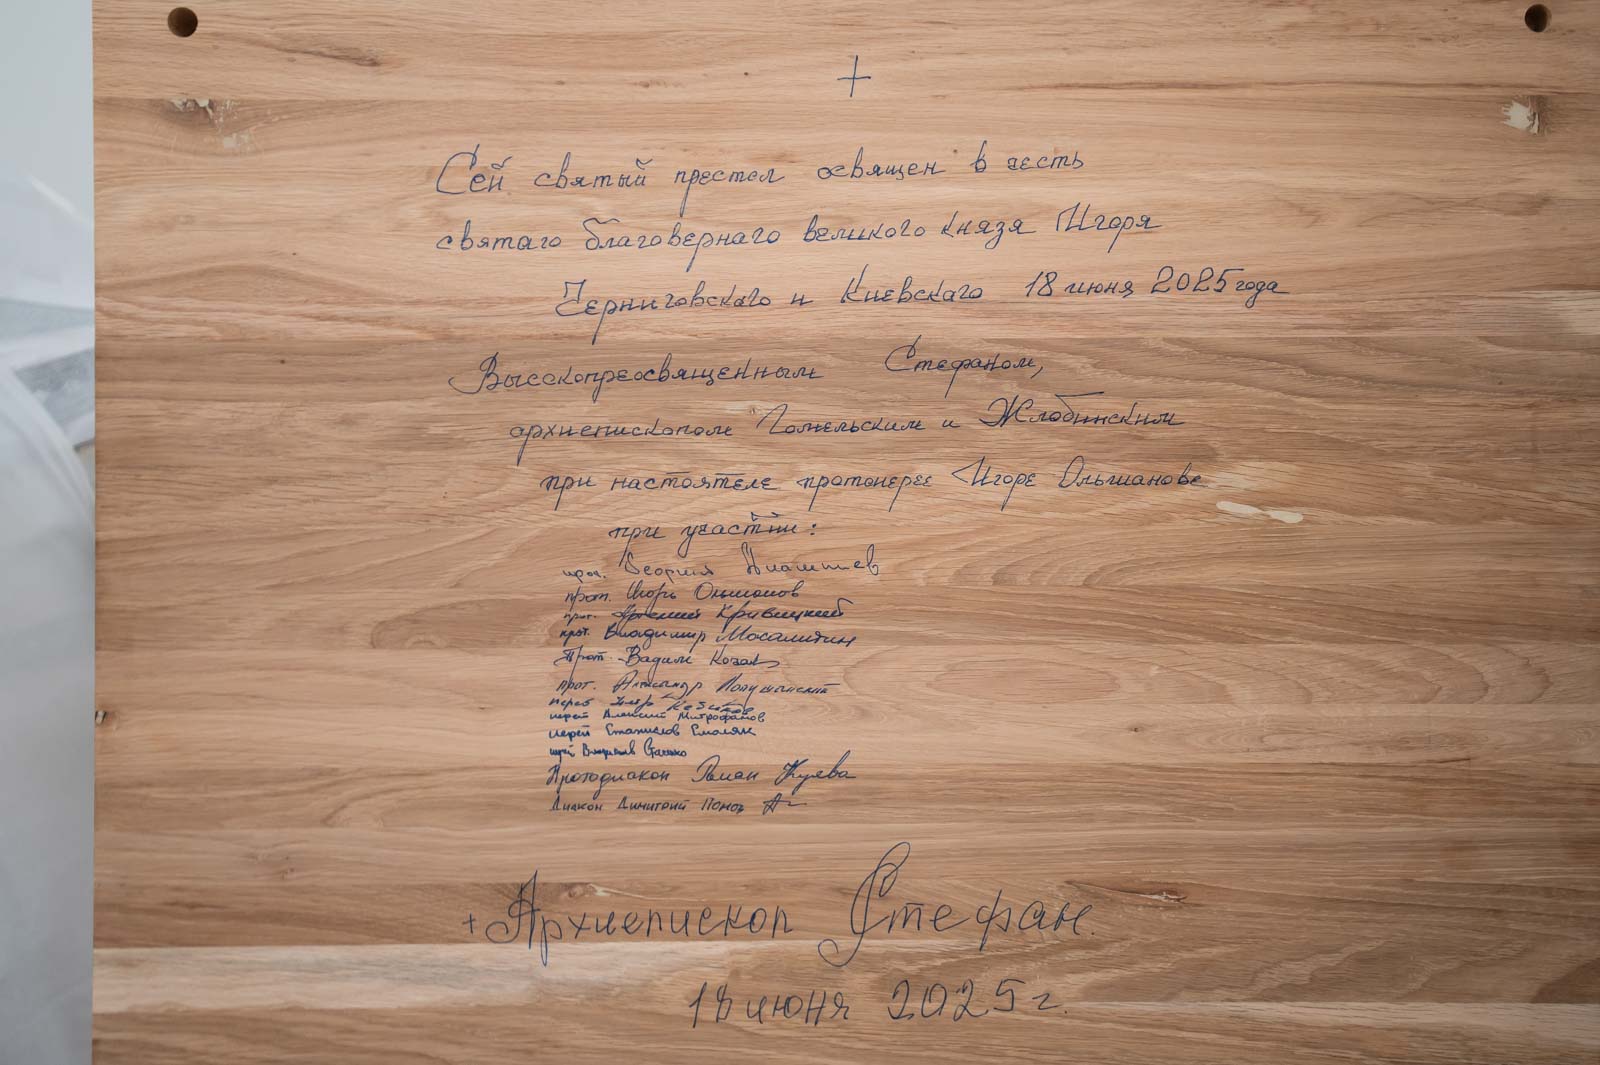 +
Сей святый престол освящен в честь
святаго благовернаго великого князя Игоря
Черниговскаго и Киевскаго 18 июня 2025 года
Высокопреосвященным Стефаном,
архиепископом Гомельским и Жлобинским
при настоятеле протоиерее Игоре Ольшанове
при участии:
прот. Георгий
прот. Игорь Ольшанов
прот. Арсений Кривицкий
прот. Владимир Мосалитин
Прот. Вадим Коваль
прот. Александр Лопушанский
иерей
иерей Алексий Митрофанов
иерей Станислов Смоляк
иерей
Протодиакон Роман Куева
Диакон Димитрий
+ Архиепископ Стефан.
18 июня 2025 г.